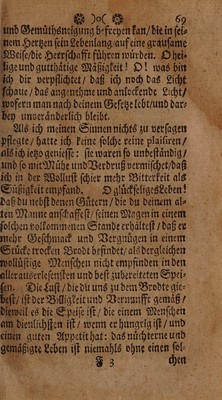 )o( 69
und Gemüthsneigung befreyen kan/ die in sei-
nem Hertzen sein Lebenlang auf eine grausame
Weise/ die Herrschafft führen würden. O hei-
lige und gutthätige Mäßigkeit! O! was bin
ich dir verpflichtet/ daß ich noch das Licht
schaue/ das angenehme und anlockende Licht/
wofern man nach deinem Gesetze lebt/ und dar-
bey unveränderlich bleibt.
Als ich meinen Sinnen nichts zu versagen
pflegte/ hatte ich keine solche reine plaisiren/
als ich ietzo geniesse: sie waren so unbeständig/
und so mit Mühe und Verdruß vermischet/ daß
ich in der Wollust schier mehr Bitterkeit als
Süßigkeit empfand. O glückseliges Leben!
daß du nebst denen Gütern/ die du deinem al-
ten Manne anschaffest/ seinen Magen in einem
solchen vollkommenen Stande erhältest/ daß er
mehr Geschmack und Vergnügen in einem
Stücke trocken Brodt befindet/ als dergleichen
wollüstige Menschen nicht empfinden in den
allerauserlesensten und best zubereiteten Spei-
sen. Die Lust/ die du uns zu dem Brodte gie-
best/ ist der Billigkeit und Vernunfft gemäß/
dieweil es die Speise ist/ die dem Menschen
am dienlichsten ist/ wenn er hungrig ist/ und
einen guten Appetit hat: das nüchterne und
gemäßigte Leben ist niemahls ohne einen sol-
F 3 chen